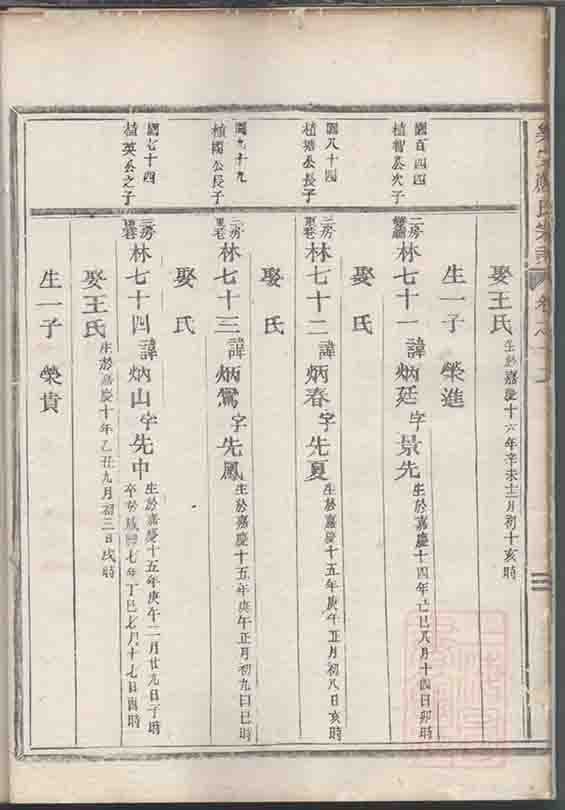 娶王氏 生於嘉慶十六年辛未十二月初十亥時
生一子 榮進
國百四四
植智公次子
二房
林七十一諱炳廷字景先 生於嘉慶十四年己巳八月十四日卯時
娶 氏
國八十四
植德公長子
三房
林七十二諱炳春字先夏 生於嘉慶十五年庚午正月初八日亥時
娶 氏
國九十九
公長子
三房
林七十三諱炳鸞字先鳳 生於嘉慶十五年庚午正月初九日巳時
娶 氏
國七十四
植英公之子
三房
林七十四諱炳山字先中 生於嘉慶十五年庚午二月廿九日子時
卒於咸豐七年丁巳七月十七日酉時
娶王氏 生於嘉慶十年乙丑九月初三日戌時
生一子 榮貴